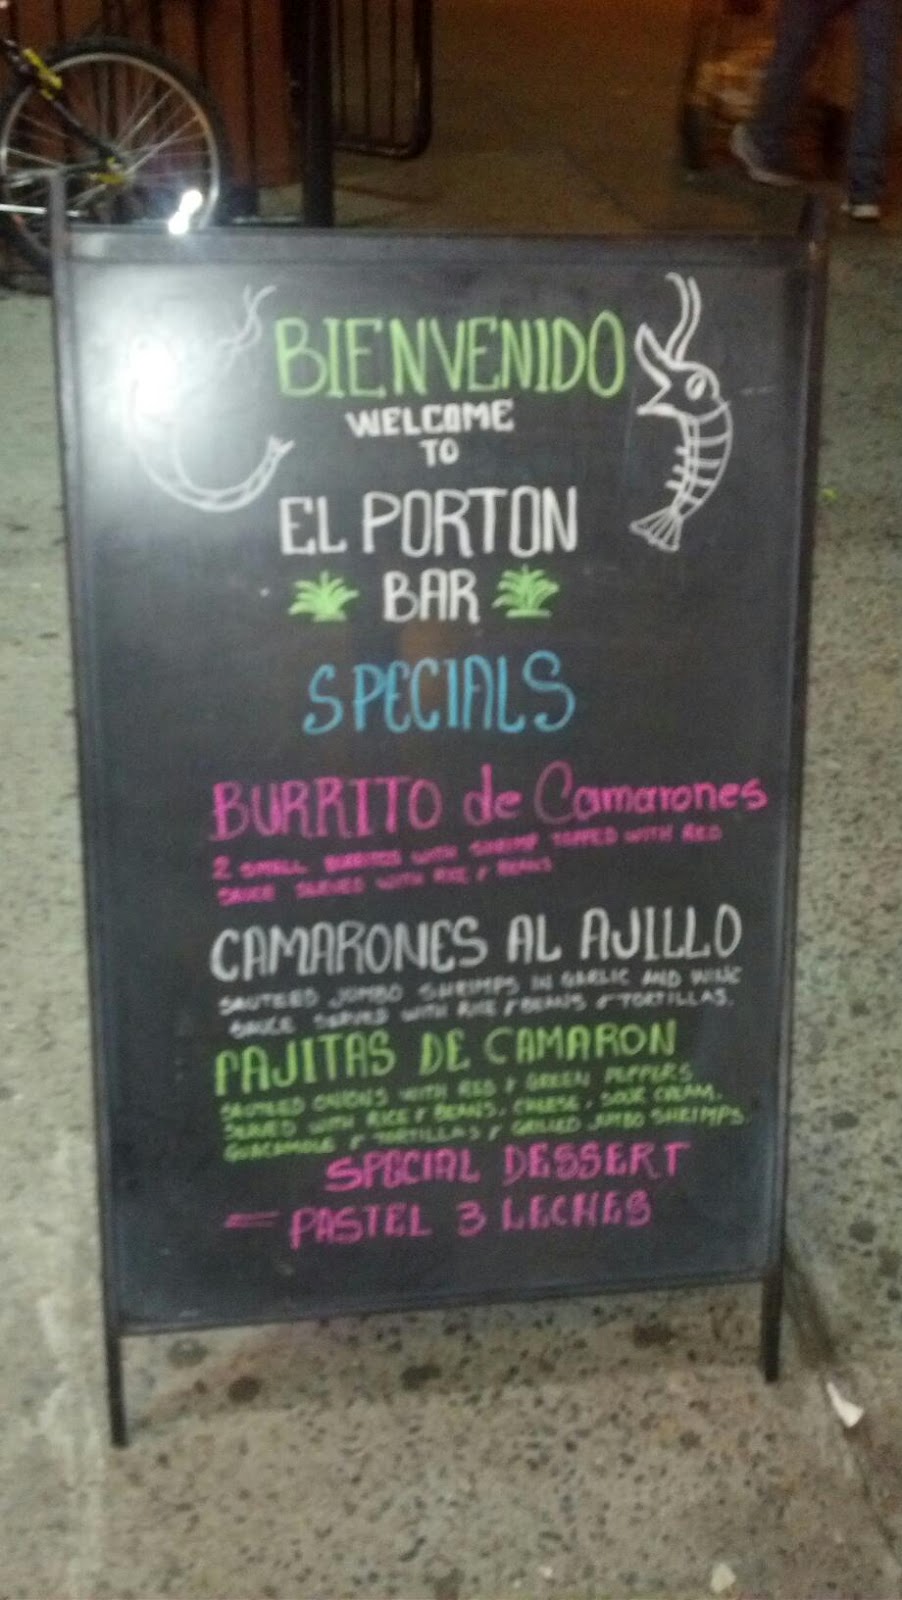 BIENVENIDO
WELCOME
TO
EL PORTON
BAR
SPECIALS
BURRITO de Camarones
2 SMALL BURRITOS WITH SHRIMP TAPPED WITH RED
SAUCE SERVED WITH RICE & BEANS
CAMARONES AL AJILLO
SAUTEED JUMBO SHRIMPS IN GARLIC AND WINE
SAUCE SERVED WITH RICE & BEANS & TORTILLAS.
FAJITAS DE CAMARON
SAUTEED ONIONS WITH RED & GREEN PEPPERS
SERVED WITH RICE & BEANS, CHEESE, SOUR CREAM,
GUACAMOLE & TORTILLAS & GRILLED JUMBO SHRIMPS.
SPECIAL DESSERT
= PASTEL 3 LECHES